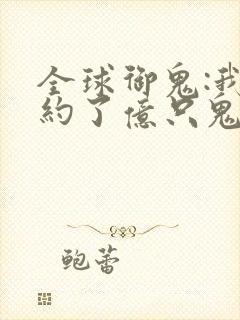 全球御鬼:我
約了億只鬼
鲍蕾